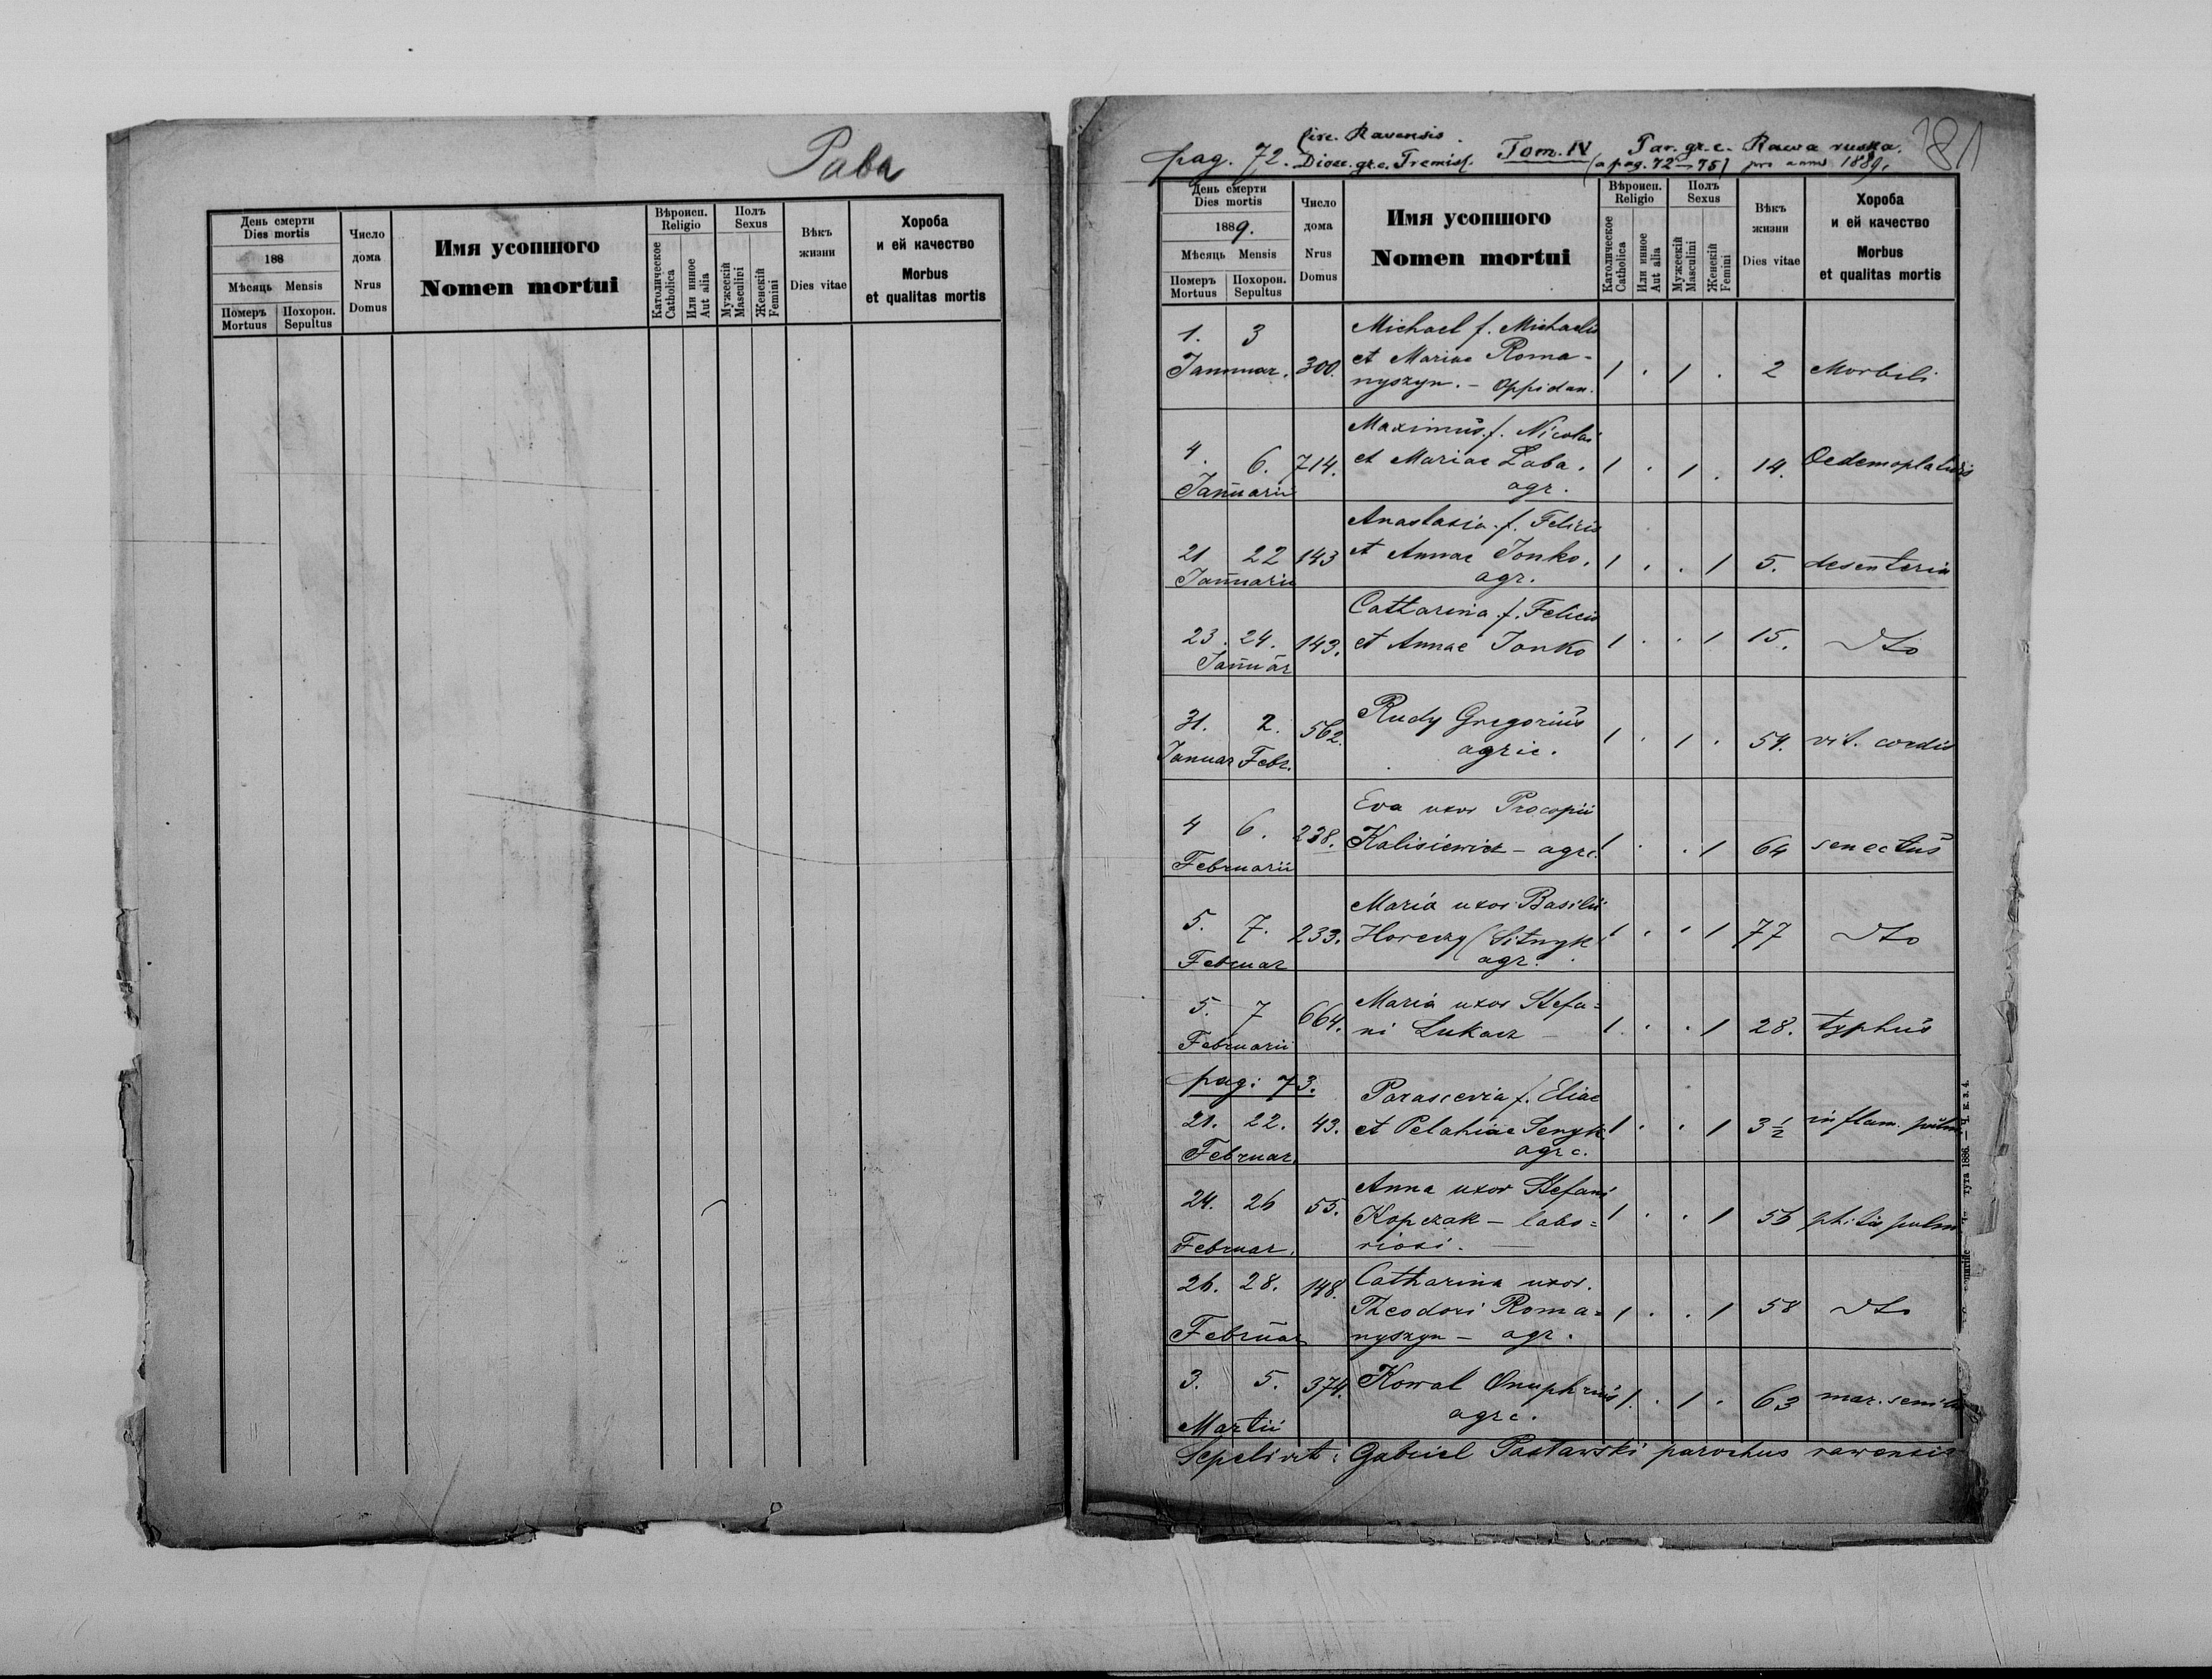 Рава
День смерти
Dies mortis
188
Мѣсяць Mensis
Померъ Mortuus
Похорон. Sepultus
Число дома
Nrus Domus
Имя усопшого
Nomen mortui
Вѣроисп.
Religio
Католическое Catholica
Или инное Aut alia
Полъ
Sexus
Мужескій Masculini
Женскій Femini
Вѣкъ жизни
Dies vitae
Хороба
и ей качество
Morbus
et qualitas mortis
381
Circ. Ravensis
pag. 72. Dioec. gr. c. Premisl. Tom. IV Par. gr. c. Rawa ruska.
(a pag. 72–75) pro anno 1889.
День смерти
Dies mortis
1889.
Мѣсяць Mensis
Померъ Mortuus
Похорон. Sepultus
Число дома
Nrus Domus
Имя усопшого
Nomen mortui
Вѣроисп.
Religio
Католическое Catholica
Или инное Aut alia
Полъ
Sexus
Мужескій Masculini
Женскій Femini
Вѣкъ жизни
Dies vitae
Хороба
и ей качество
Morbus
et qualitas mortis
Michael f. Michaelis
1. 3
et Mariae Roma-
Januar. 300. 1 . 1 . 2 Morbili
nyszyn. – Oppidan.
Maximus f. Nicolai
4. 6. 714. et Mariae Laba. 1 . 1 . 14.
Januarii agr.
Anastasia f. Felicis
21 22 143 et Annae Jonko. 1 . . 1 5. desenteria
Januarii agr.
Catharina f. Felicis
23. 24. 143. et Annae Jonko 1 . . 1 15. dto
Januar
31. 2. 562. Rudy Gregorius 1 . 1 . 54. vit. cordis
Januar Febr. agric.
Eva uxor Procopii
4 6. 238. Kalisiewicz – agrc. 1 . . 1 64 senectus
Februarii
Maria uxor Basilii
5. 7. 233. Horeczy (Sitnyk 1 . . 1 77 dto
Februar agr.
Maria uxor Stefa=
5. 7 664. ni Lukacz – 1 . . 1 28. typhus
Februarii
pag: 73.
Parascevia f. Eliae
21. 22. 43. et Pelahiae Senyk 1 . . 1 3½ inflam. pulm
Februar. agrc.
Anna uxor Stefani
24. 26 55. Kopczak – labo= 1 . . 1 56 phitis pulm
Februar. riosi. –
26. 28. 148. Catharina uxor.
Theodori Roma= 1 . . 1 58 dto
Februar nyszyn – agr.
3. 5. 374. Kowal Onuphrius 1. . 1 . 63 mar. senilis
Martii agrc.
Sepelivit: Gabriel Pastawski parochus rawensis
тута 1886. — Ч. к. з. 4.